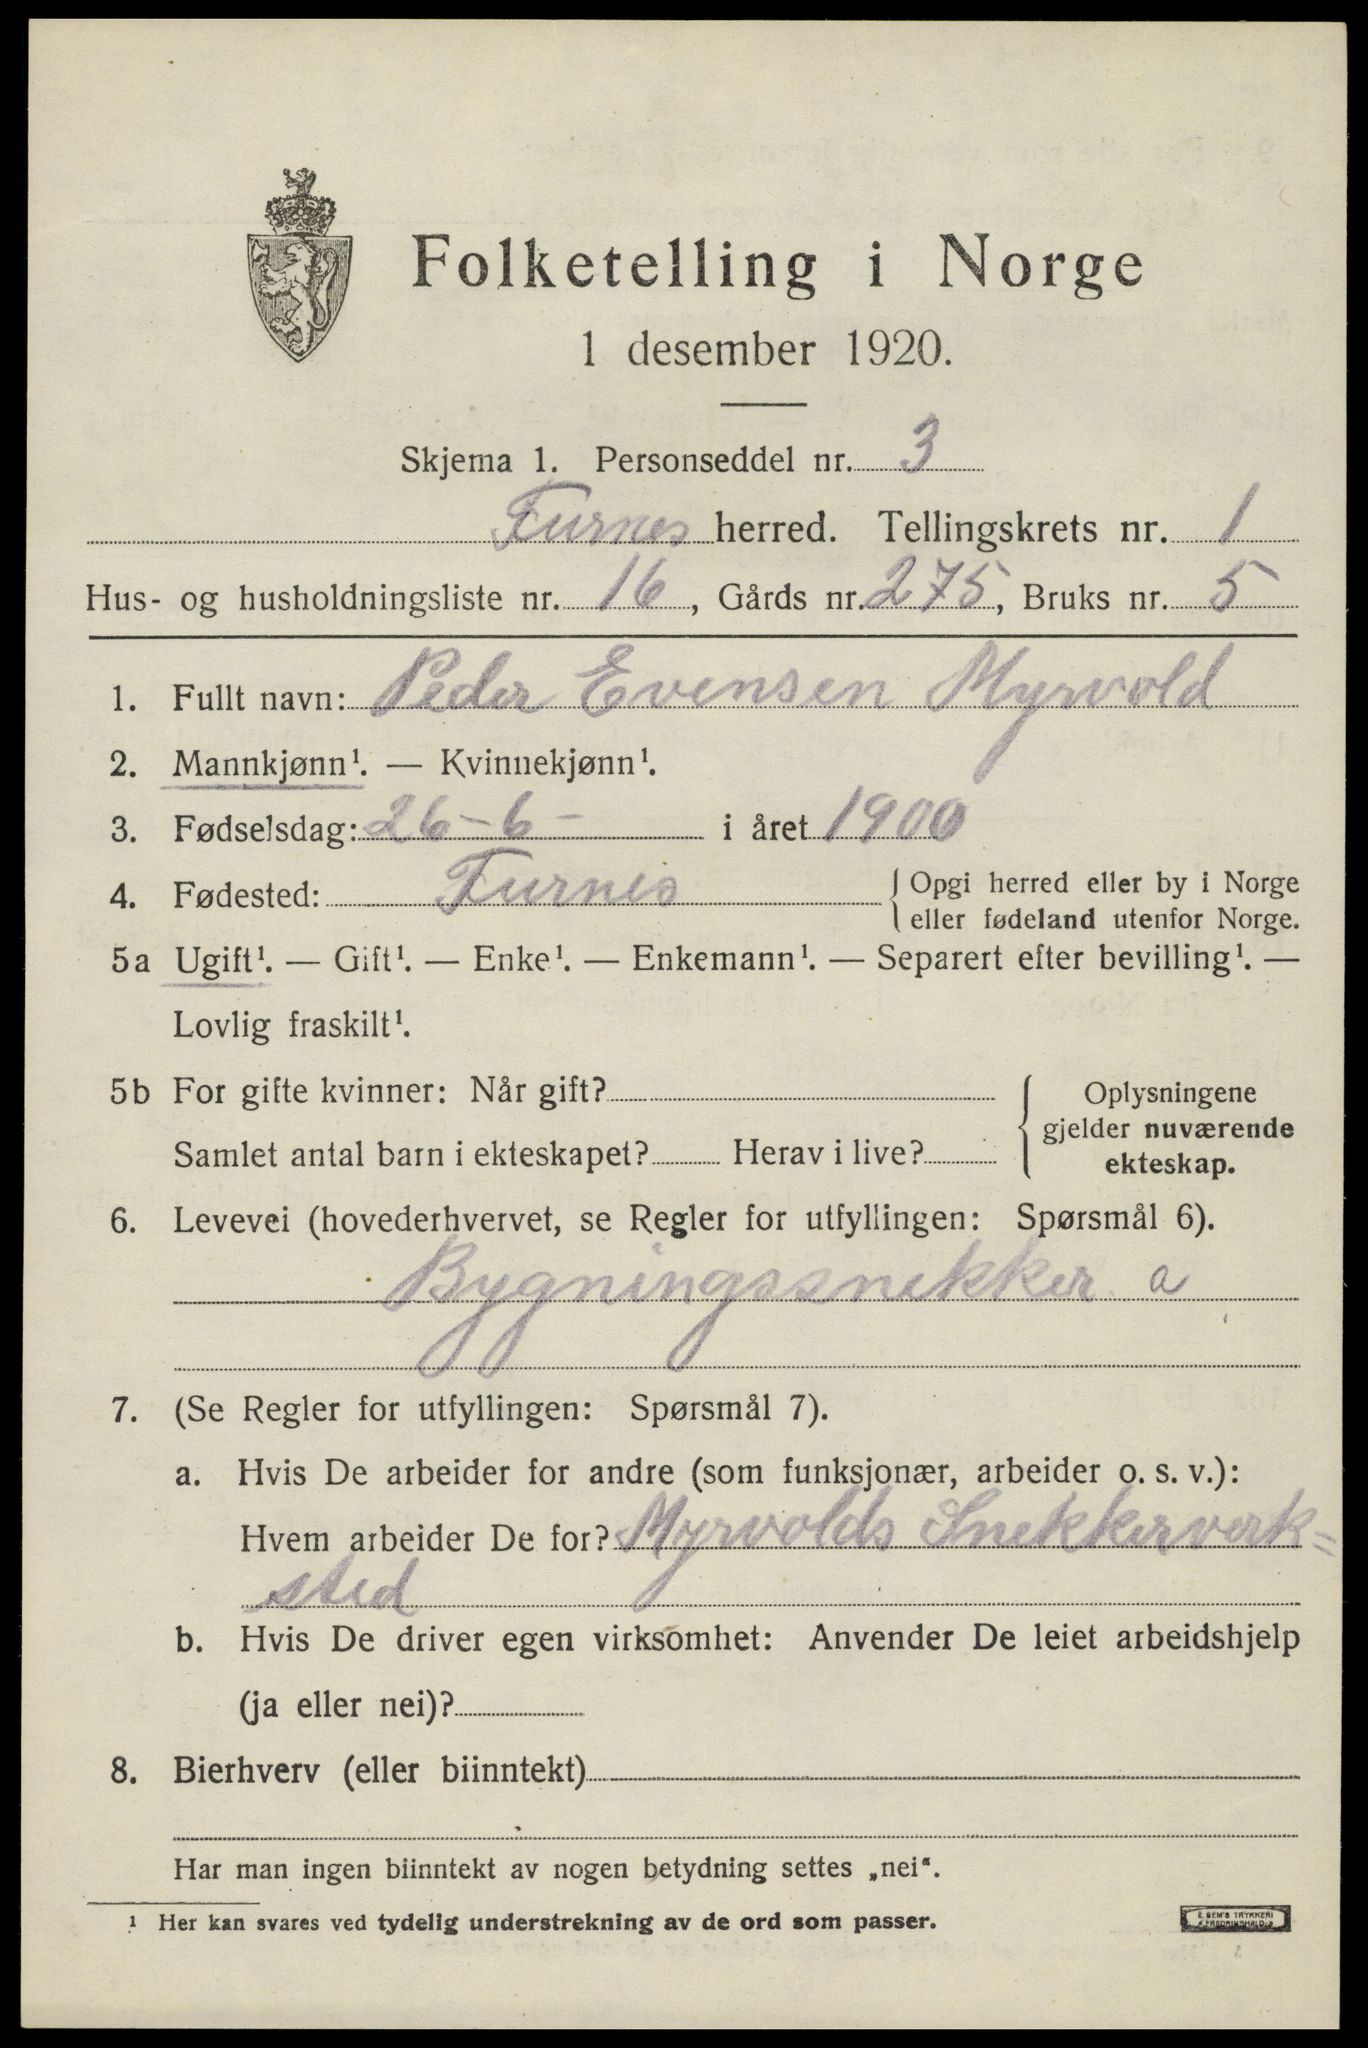 Folketelling i Norge
1 desember 1920.
Skjema 1. Personseddel nr. 3
Furnes herred. Tellingskrets nr. 1
Hus- og husholdningsliste nr. 16, Gårds nr. 275, Bruks nr. 5
1. Fullt navn: Peder Evensen Myrvold
2. Mannkjønn¹. — Kvinnekjønn¹.
3. Fødselsdag: 26-6- i året 1900
4. Fødested: Furnes { Opgi herred eller by i Norge
eller fødeland utenfor Norge.
5a Ugift¹. — Gift¹. — Enke¹. — Enkemann¹. — Separert efter bevilling¹. —
Lovlig fraskilt¹.
5b For gifte kvinner: Når gift?
Samlet antal barn i ekteskapet? Herav i live?
{ Oplysningene
gjelder nuværende
ekteskap.
6. Levevei (hovederhvervet, se Regler for utfyllingen: Spørsmål 6).
Bygningssnekker a
7. (Se Regler for utfyllingen: Spørsmål 7).
a. Hvis De arbeider for andre (som funksjonær, arbeider o. s. v.):
Hvem arbeider De for? Myrvolds Snekkerverk=
sted
b. Hvis De driver egen virksomhet: Anvender De leiet arbeidshjelp
(ja eller nei)?
8. Bierhverv (eller biinntekt)
Har man ingen biinntekt av nogen betydning settes „nei“.
¹ Her kan svares ved tydelig understrekning av de ord som passer.
E. SEM'S TRYKKERI
FREDRIKSHALD